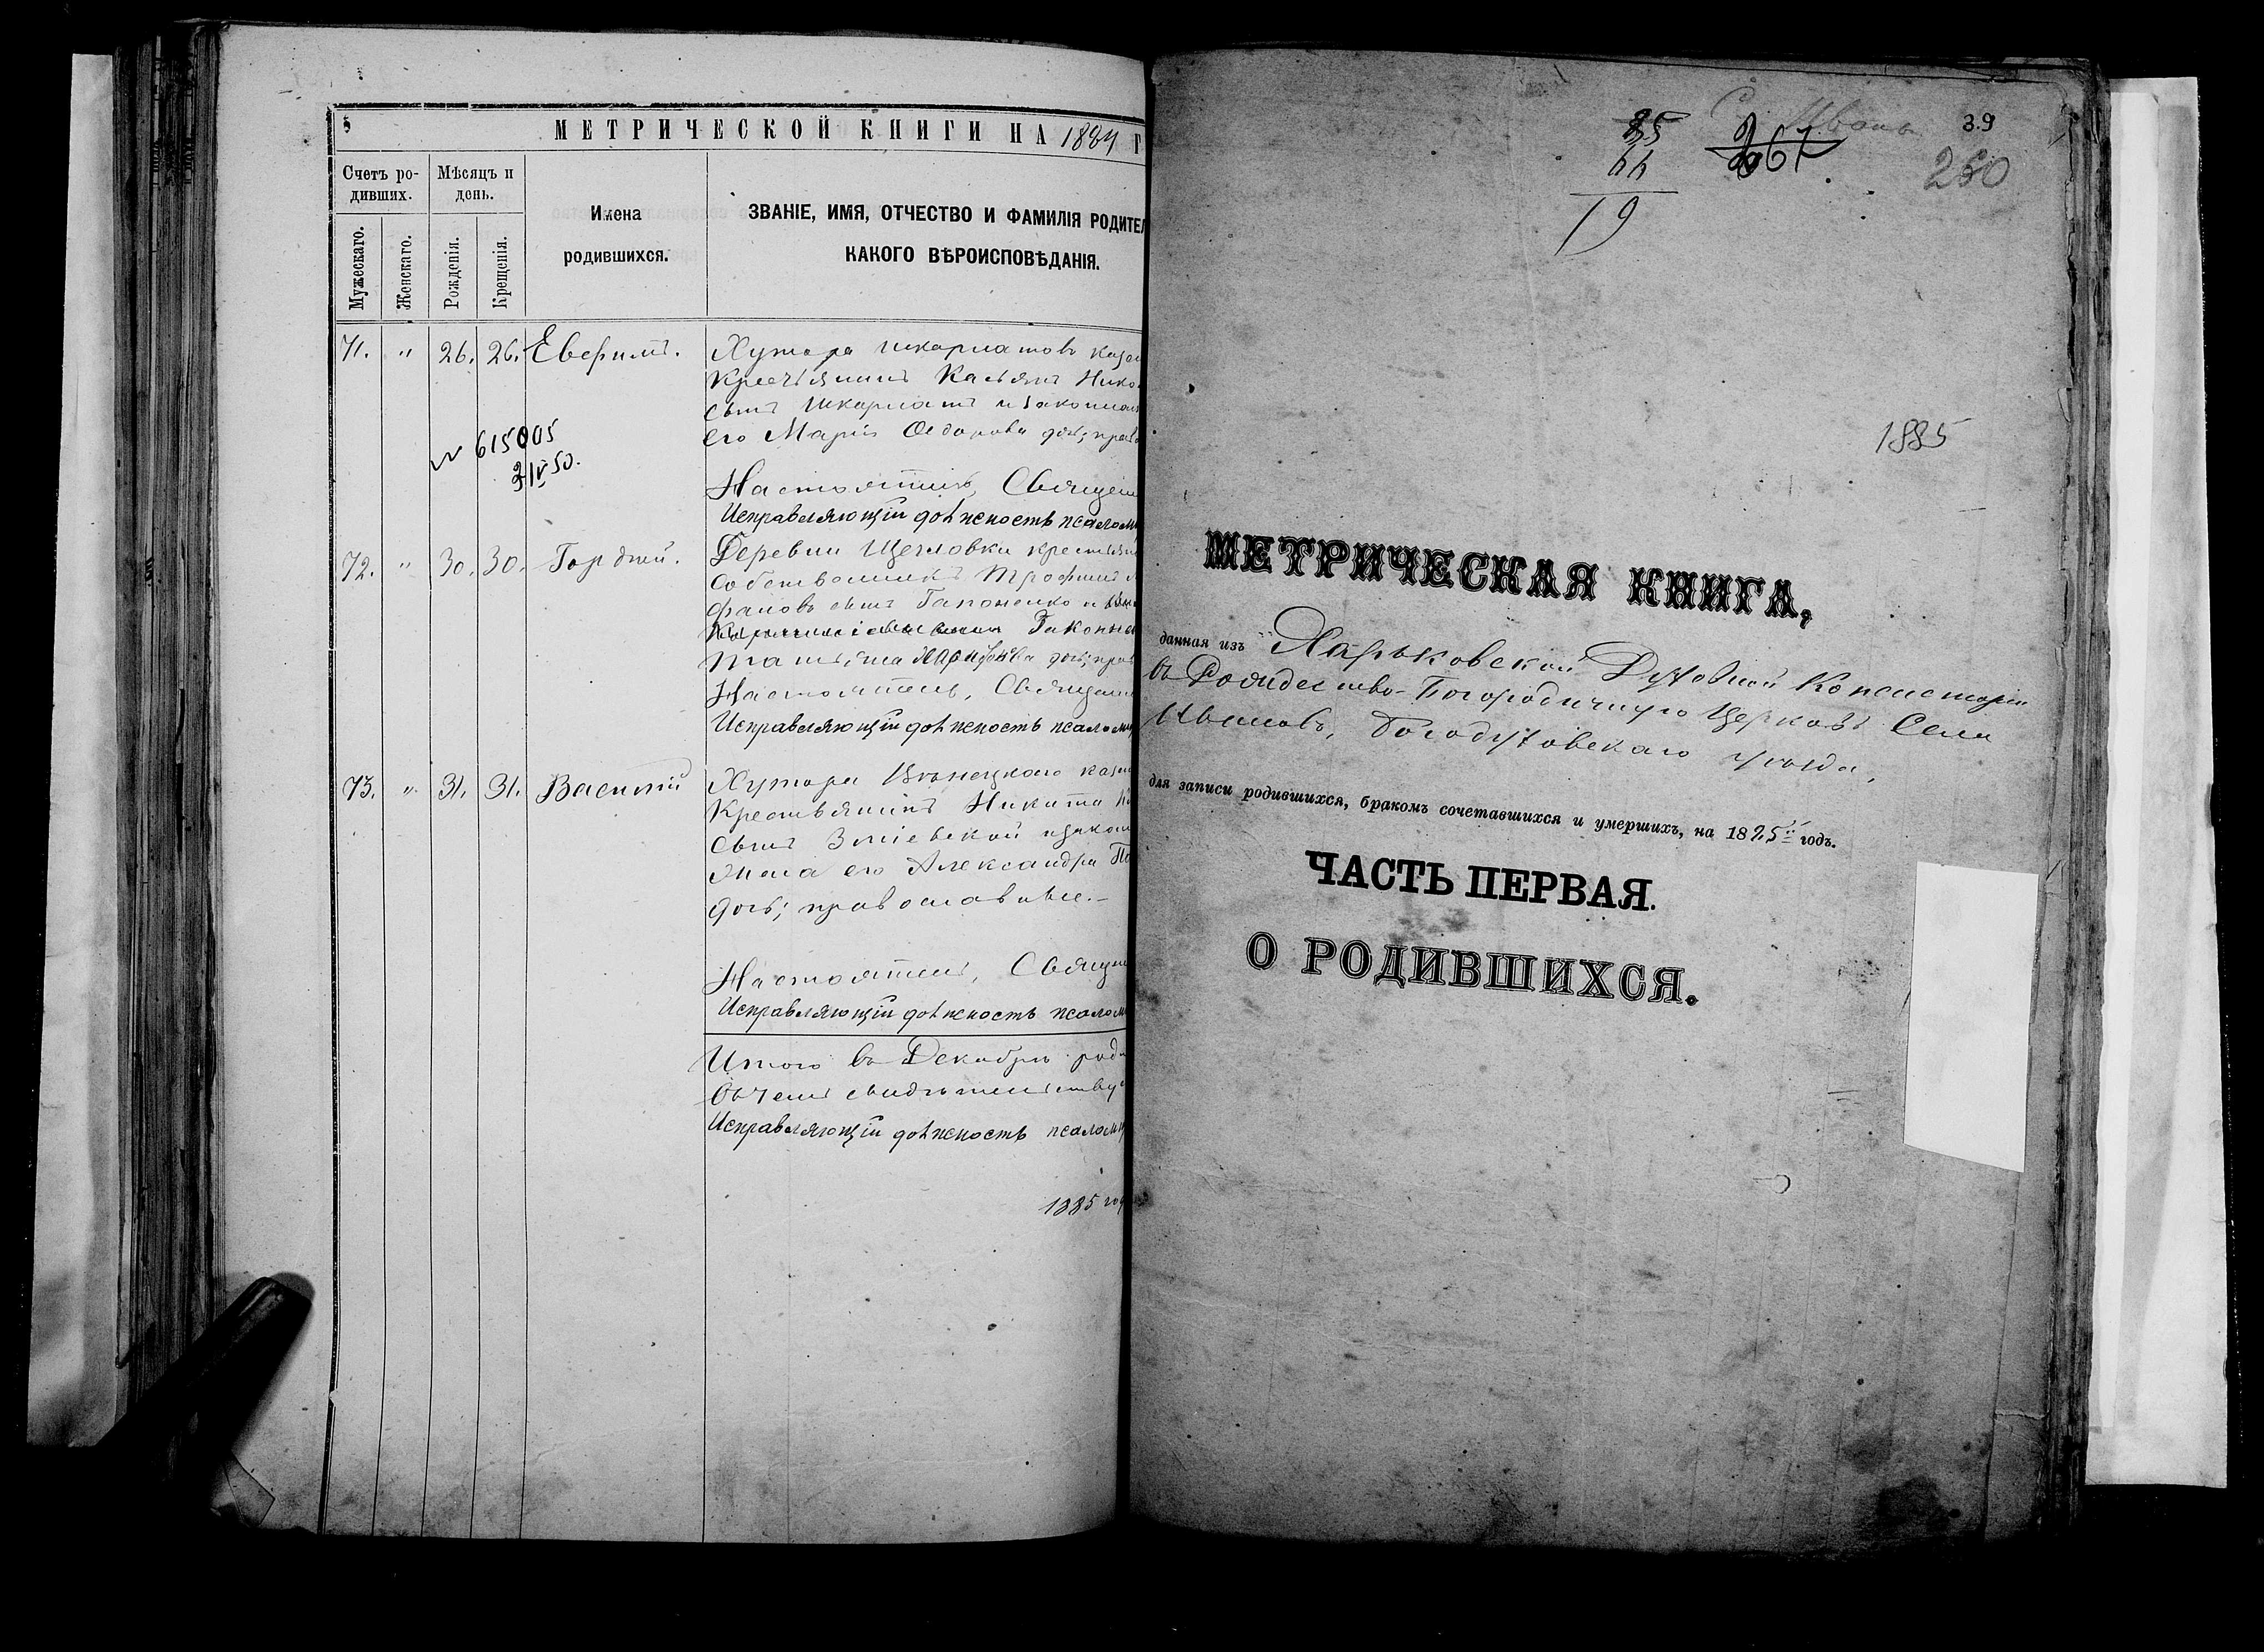 МЕТРИЧЕСКОЙ КНИГИ НА 1884 Г
Счетъ ро-
дивших.
Мѣсяцъ и
день.
Имена
родившихся.
ЗВАНІЕ, ИМЯ, ОТЧЕСТВО И ФАМИЛІЯ РОДИТЕЛ
КАКОГО ВѢРОИСПОВѢДАНІЯ.
Мужескаго.
Женскаго.
Рожденія.
Крещенія.
71. " 26. 26.
Хутора Шкарлатовъ казен
Крестьянинъ Касьянъ Нико
сынъ Шкарлатъ и законная
его Марія Ѳедорова доч; прав
615005
3/IV 50.
Настоятель, Священ
Исправляющій должность псалом
72. " 30. 30. Гордѣй.
Деревни Щегловки крестьян
собственникъ Трофимъ
фановъ сынъ Гапоненко и
Законна
доч; прав
Настоятель, Священ
Исправляющій должность псалом
73. " 31. 31. Василій
Хутора казен
Крестьянинъ Никита
сынъ Зміевской и закон
жена его Александра
дочь; православные.-
Настоятель, Священ
Исправляющій должность псалом
Итого въ Декабрѣ роди
въ чемъ свидѣтельству
Исправляющій должность псалом
1885 год
85
66
19
267
39
260
1885
МЕТРИЧЕСКАЯ КНИГА,
данная изъ Харьковской Духовной Консисторіи
въ Рождество-Богородичную Церковь Села
Ивановъ, Богодуховскаго уѣзда,
для записи родившихся, бракомъ сочетавшихся и умершихъ, на 1885й годъ.
ЧАСТЬ ПЕРВАЯ.
О РОДИВШИХСЯ.